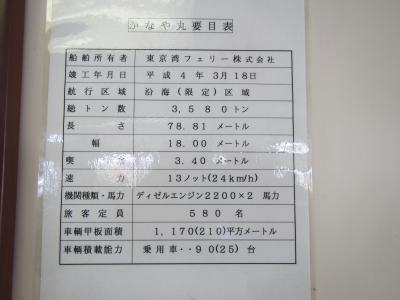 かなや丸要目表
船舶所有者 東京湾フェリー株式会社
竣工年月日 平成 4年 3月18日
航行区域 沿海(限定)区域
総トン数 3,580トン
長さ 78.81 メートル
幅 18.00 メートル
喫水 3.40 メートル
速力 13ノット(24km/h)
機関種類・馬力 ディゼルエンジン2200×2 馬力
旅客定員 580 名
車輌甲板面積 1,170(210)平方メートル
車輌積載能力 乗用車・・90(25)台